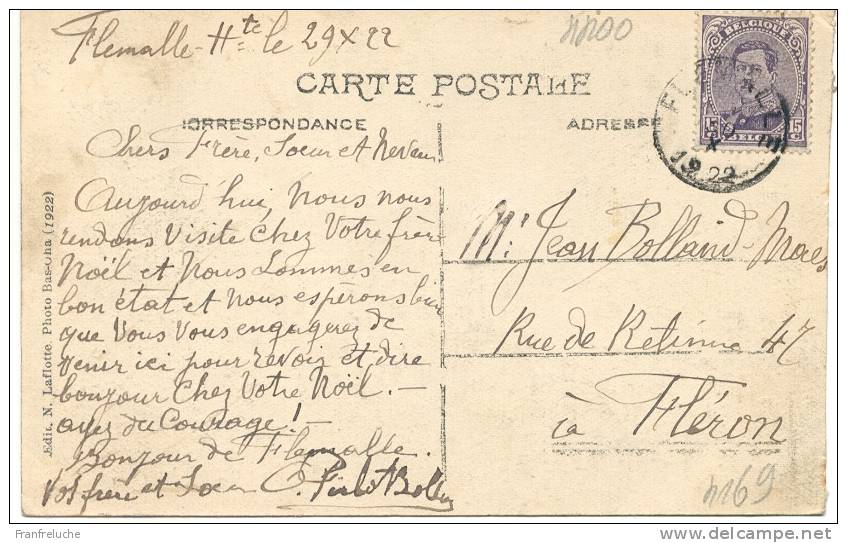 Flemalle-Hte le 29 X 22
4400
BELGIQUE
15 C 15 C
BELGIË
1922
CARTE POSTALE
CORRESPONDANCE
ADRESSE
Chers Frère, Soeur et Neveu
Aujourd'hui, nous nous
rendons visite chez Votre frère
Noël et Nous Sommes en
bon état et Nous espérons bien
que Vous Vous engagerez de
venir ici pour revoir et dire
bonjour Chez Votre Noël. —
ayez du Courage!
Bonjour de Flemalle.
Vos frère et Soeur
Mr. Jean Bolland-Maes
Rue de Retinne 47
à Fléron
Edit. N. Laflotte. Photo Bas-Oha (1922)
4169
Franfreluche
www.delcampe.net